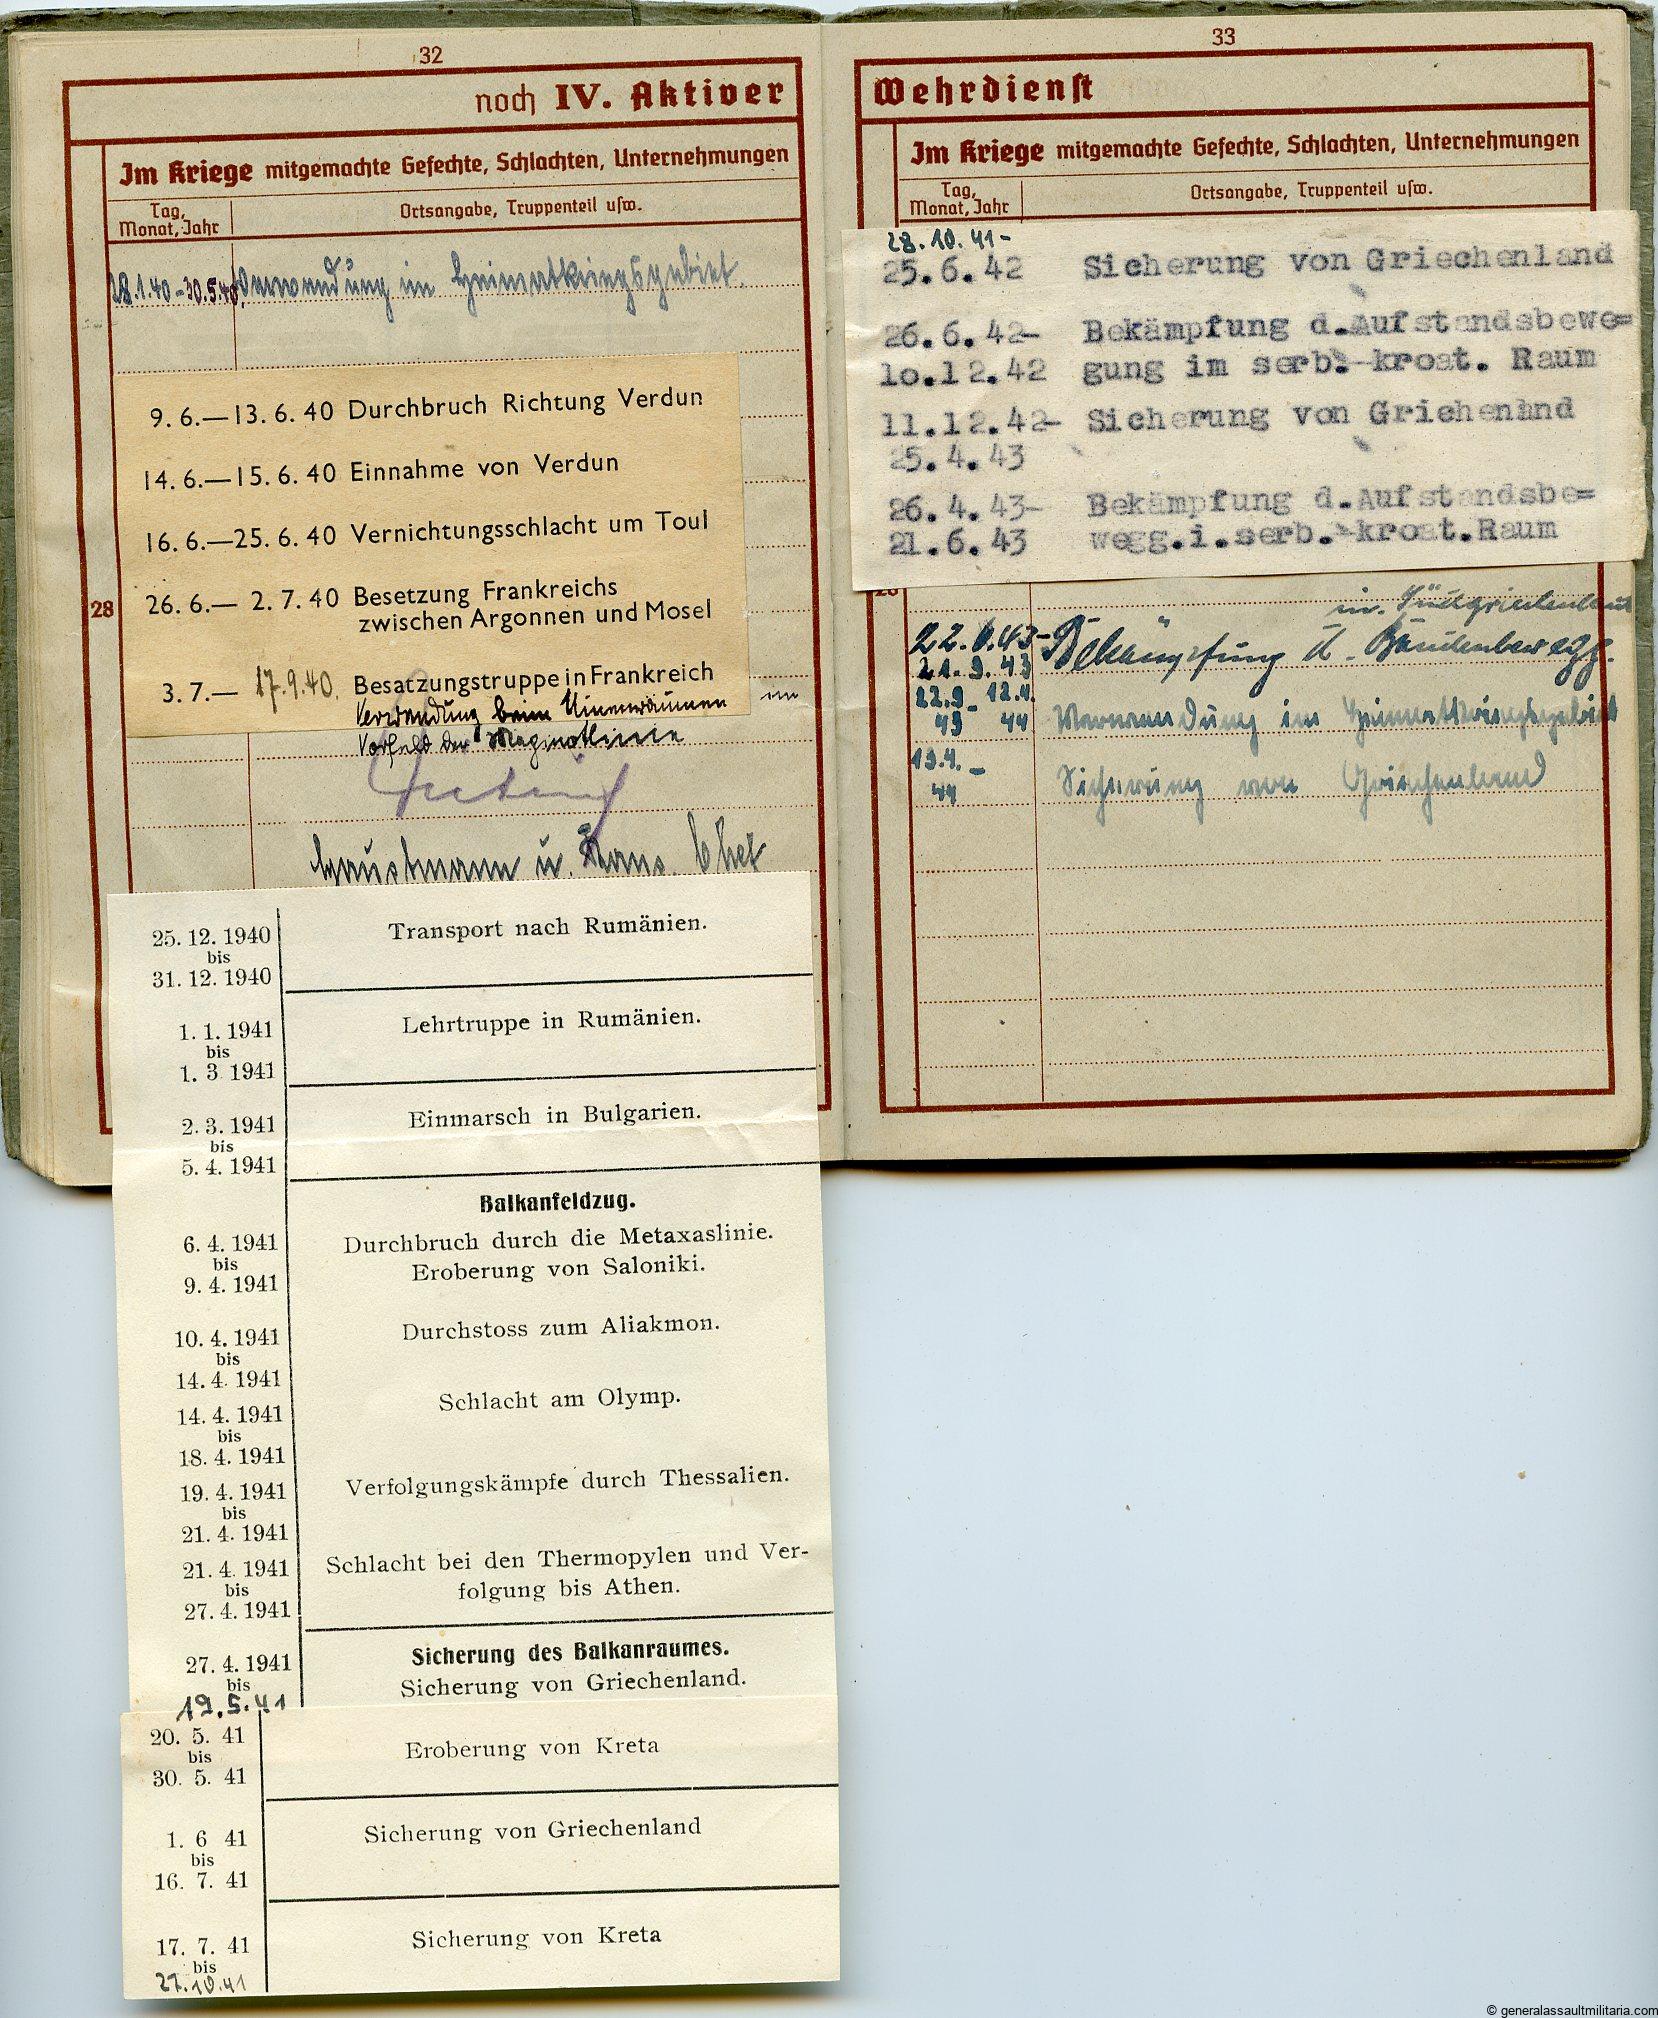 32
noch IV. Aktiver
Im Kriege mitgemachte Gefechte, Schlachten, Unternehmungen
Tag, Monat, Jahr
Ortsangabe, Truppenteil usw.
28.1.40-30.5.40 Verwendung im Heimatkriegsgebiet.
9. 6.—13. 6. 40 Durchbruch Richtung Verdun
14. 6.—15. 6. 40 Einnahme von Verdun
16. 6.—25. 6. 40 Vernichtungsschlacht um Toul
28
26. 6.— 2. 7. 40 Besetzung Frankreichs
zwischen Argonnen und Mosel
3. 7.— 17.9.40. Besatzungstruppe in Frankreich
Verwendung beim Minenräumen im
Vorfeld der Maginotlinie
Hauptmann u. Komp. Chef
25. 12. 1940
bis
31. 12. 1940
Transport nach Rumänien.
1. 1. 1941
bis
1. 3 1941
Lehrtruppe in Rumänien.
2. 3. 1941
bis
5. 4. 1941
Einmarsch in Bulgarien.
Balkanfeldzug.
6. 4. 1941
bis
9. 4. 1941
Durchbruch durch die Metaxaslinie.
Eroberung von Saloniki.
10. 4. 1941
bis
14. 4. 1941
Durchstoss zum Aliakmon.
14. 4. 1941
bis
18. 4. 1941
Schlacht am Olymp.
19. 4. 1941
bis
21. 4. 1941
Verfolgungskämpfe durch Thessalien.
21. 4. 1941
bis
27. 4. 1941
Schlacht bei den Thermopylen und Ver-
folgung bis Athen.
Sicherung des Balkanraumes.
27. 4. 1941
bis
19.5.41
Sicherung von Griechenland.
20. 5. 41
bis
30. 5. 41
Eroberung von Kreta
1. 6 41
bis
16. 7. 41
Sicherung von Griechenland
17. 7. 41
bis
27.10.41
Sicherung von Kreta
33
Wehrdienst
Im Kriege mitgemachte Gefechte, Schlachten, Unternehmungen
Tag, Monat, Jahr
Ortsangabe, Truppenteil usw.
28.10.41-
25.6.42 Sicherung von Griechenland
26.6.42- Bekämpfung d.Aufstandsbewe=
lo.12.42 gung im serb.-kroat. Raum
11.12.42- Sicherung von Griehenlnd
25.4.43
26.4.43- Bekämpfung d.Aufstandsbe=
21.6.43 wegg.i.serb.-kroat.Raum
in. Südgriechenland
22.6.43- Bekämpfung d. Bandenbewegg.
21.9.43
22.9.- 12.4.
43 44 Verwendung im Heimatkriegsgebiet
13.4.-
44 Sicherung von Griechenland
© generalassaultmilitaria.com